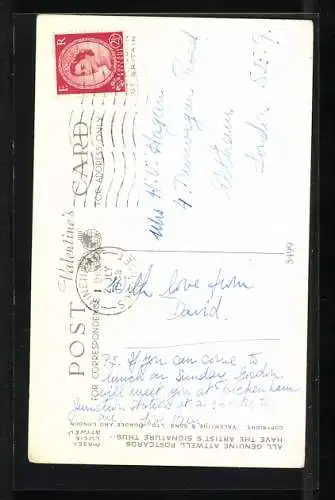 POST CARD
Valentine's
FOR CORRESPONDENCE
FOR ADDRESS ONLY
E R
2½D
JLY
Mrs H.V. Hagen
4
Road
Eltham
London S.E.9.
With love from
David.
P.S. If you can come to
lunch on Sunday, Gordon
will meet you at Beckenham
Junction Station at a quarter to
one.
5499
ALL GENUINE ATTWELL POSTCARDS
HAVE THE ARTIST'S SIGNATURE THUS:-
MABEL
LUCIE
ATTWELL
COPYRIGHT. VALENTINE & SONS, LTD., DUNDEE AND LONDON